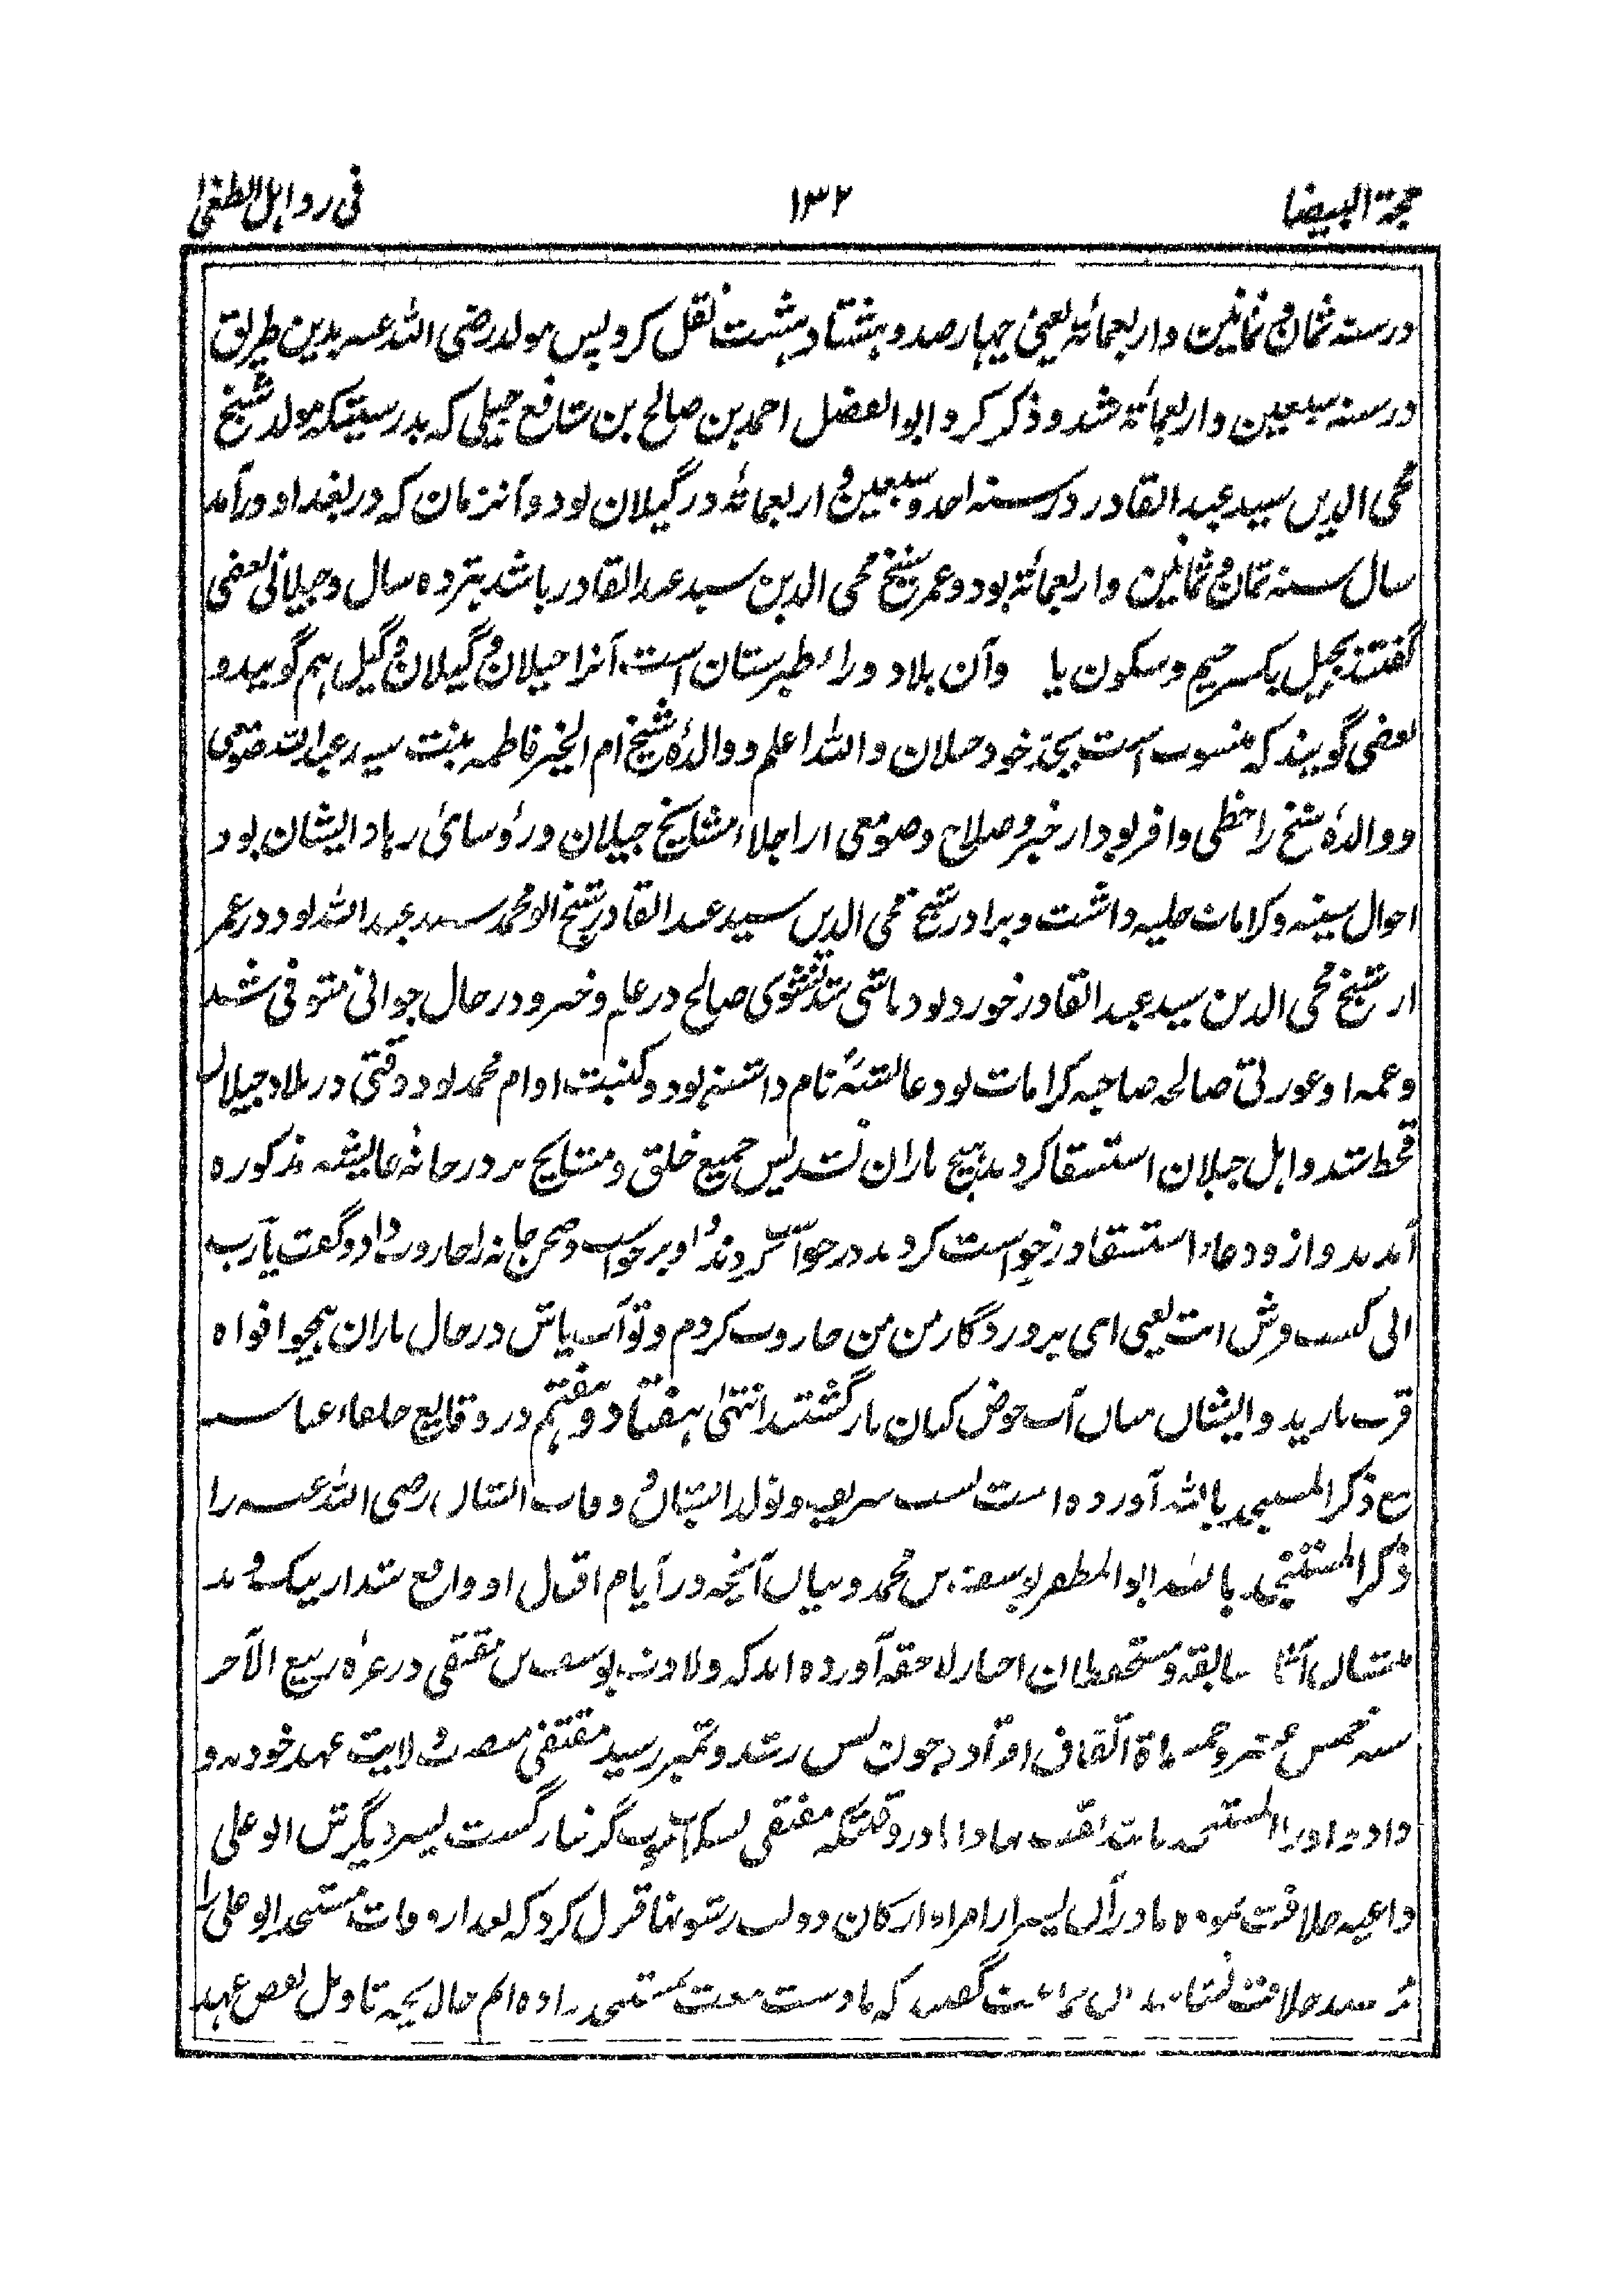 حجة البیضا ۱۳۲ فی رد اہل الطغی
در سنه ثمان و ثمانین و اربعمائة یعنی چهارصد و هشتاد و هشت نقل کرد پس مولد رضی الله عنه بدین طریق
در سنه سبعین و اربعمائة شد و ذکر کرد ابوالفضل احمد بن صالح بن شافع جیلی که بدرستیکه مولد شیخ
محی الدین سید عبدالقادر در سنه احد و سبعین و اربعمائة در گیلان بود و آنزمان که در بغداد درآمد
سال سنه ثمان و ثمانین و اربعمائة بود و عمر شیخ محی الدین سید عبدالقادر باشد هژده سال و جیلانی بعضی
گفتند بجیل بکسر جیم و سکون یا و آن بلاد وراء طبرستان است آنرا جیلان و گیلان و گیل هم گویند و
بعضی گویند که منسوب است بجد خود جیلان والله اعلم و والدهٔ شیخ ام الخیر فاطمه بنت سید عبدالله صومعی
و والدهٔ شیخ را حظی وافر بود از خیر و صلاح و صومعی از اجلاء مشایخ جیلان و رؤسای زهاد ایشان بود
احوال سینه و کرامات جلیه داشت و برادر شیخ محی الدین سید عبدالقادر شیخ ابو محمد سید عبدالله بود در عمر
از شیخ محی الدین سید عبدالقادر خورد بود ناشی شد نشوی صالح در علم و خیر و در حال جوانی متوفی شد
و عمه او عورتی صالحه صاحبه کرامات بود عائشه نام داشته بود و کنیت او ام محمد بود وقتی در بلاد جیلان
قحط شد و اهل جیلان استسقا کردند هیچ باران نشد پس جمیع خلق و مشایخ بر در خانهٔ عایشه مذکوره
آمدند و از و دعاء استسقا درخواست کردند درخواست کردند او برخواست و صحن خانه را جاروب داد و گفت یا رب
انی کنست و رش انت یعنی ای پروردگار من من جاروب کردم و تو آب پاش در حال باران همچو افواه
قرب بارید و ایشان میان آب خوض کنان بازگشتند انتهی هفتاد و هفتم در وقایع خلفاء عباسیه
ذکر المستنجد بالله آورده است نسب شریف و تولد ایشان و وفات ایشان رضی الله عنه را
ذکر المستنجد بالله ابوالمظفر یوسف بن محمد و بیان آنچه در ایام اقبال او واقع شد از نیک و بد
سابقه و مستحفظان اخبار لاحقه آورده اند که ولادت یوسف بن مقتفی در غره ربیع الآخر
سنه خمس عشر و خمسمائة اتفاق افتاد چون بسن رشد و تمیز رسید مقتفی منصب ولایت عهد خود بدو
داد و او را المستنجد بالله لقب نهاد اما در وقتیکه مقتفی بسکرات موت گرفتار گشت پسر دیگرش ابو علی
داعیه خلافت نموده مادر آن پسر از امراء و ارکان دولت رشوتها قبول کرد که بعد از وفات مستنجد ابو علی را
بر مسند خلافت نشانند گفتند که ما دست بیعت بمستنجد داده ایم حال بچه تاویل نقض عهد